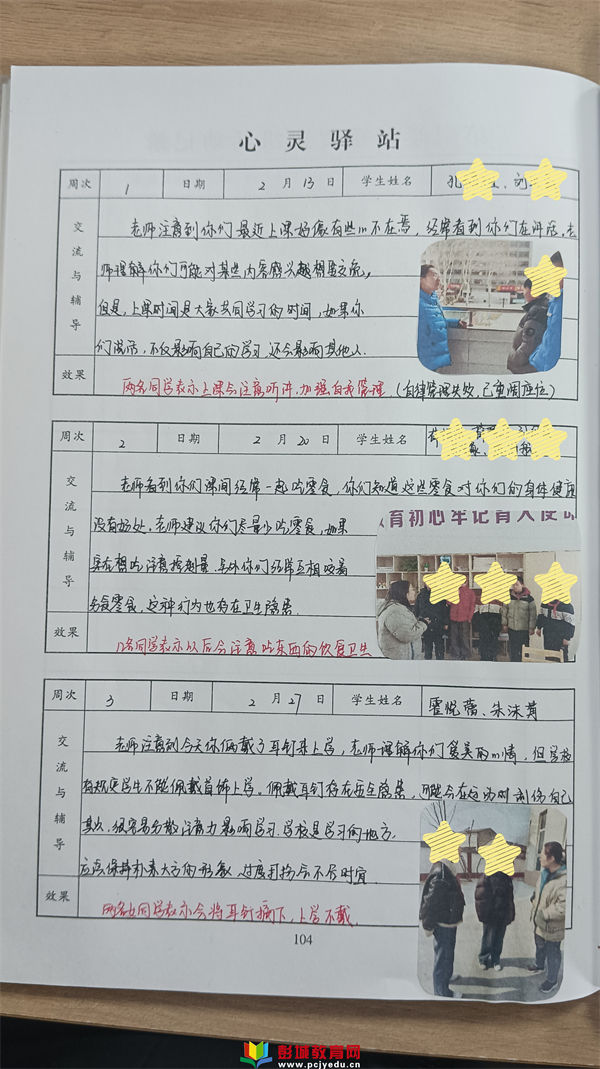 心灵驿站
周次 1 日期 2月13日 学生姓名 孔
交流与辅导
老师注意到你们最近上课好像有些心不在焉，经常看到你们在讲话，老
师理解你们可能对某些内容感兴趣想要交流。
但是，上课时间是大家共同学习的时间，如果你
们讲话，不仅影响自己的学习，还会影响其他人.
效果 两名同学表示上课会注意听讲，加强自我管理（自律管理失效，已重调座位）
周次 2 日期 2月20日 学生姓名
交流与辅导
老师看到你们课间经常一起吃零食，你们知道这些零食对你们的身体健康
没有好处。老师建议你们尽量少吃零食，如果
实在想吃注意控制量.另外你们经常互相咬着
分食零食，这种行为也存在卫生隐患.
效果 几名同学表示以后会注意吃东西的饮食卫生
育初心牢记育人使命
周次 3 日期 2月27日 学生姓名 霍悦蕾、朱沫菁
交流与辅导
老师注意到今天你俩戴了耳钉来上学，老师理解你们爱美的心情，但学校
有规定学生不能佩戴首饰上学。佩戴耳钉存在安全隐患，可能会在运动时刮伤自己
其次，很容易分散注意力影响学习.学校是学习的地方，
应该保持朴素大方的形象，过度打扮会不合时宜.
效果 两名女同学表示会将耳钉摘下，上学不戴.
104
彭城教育网
www.pcjyedu.cn